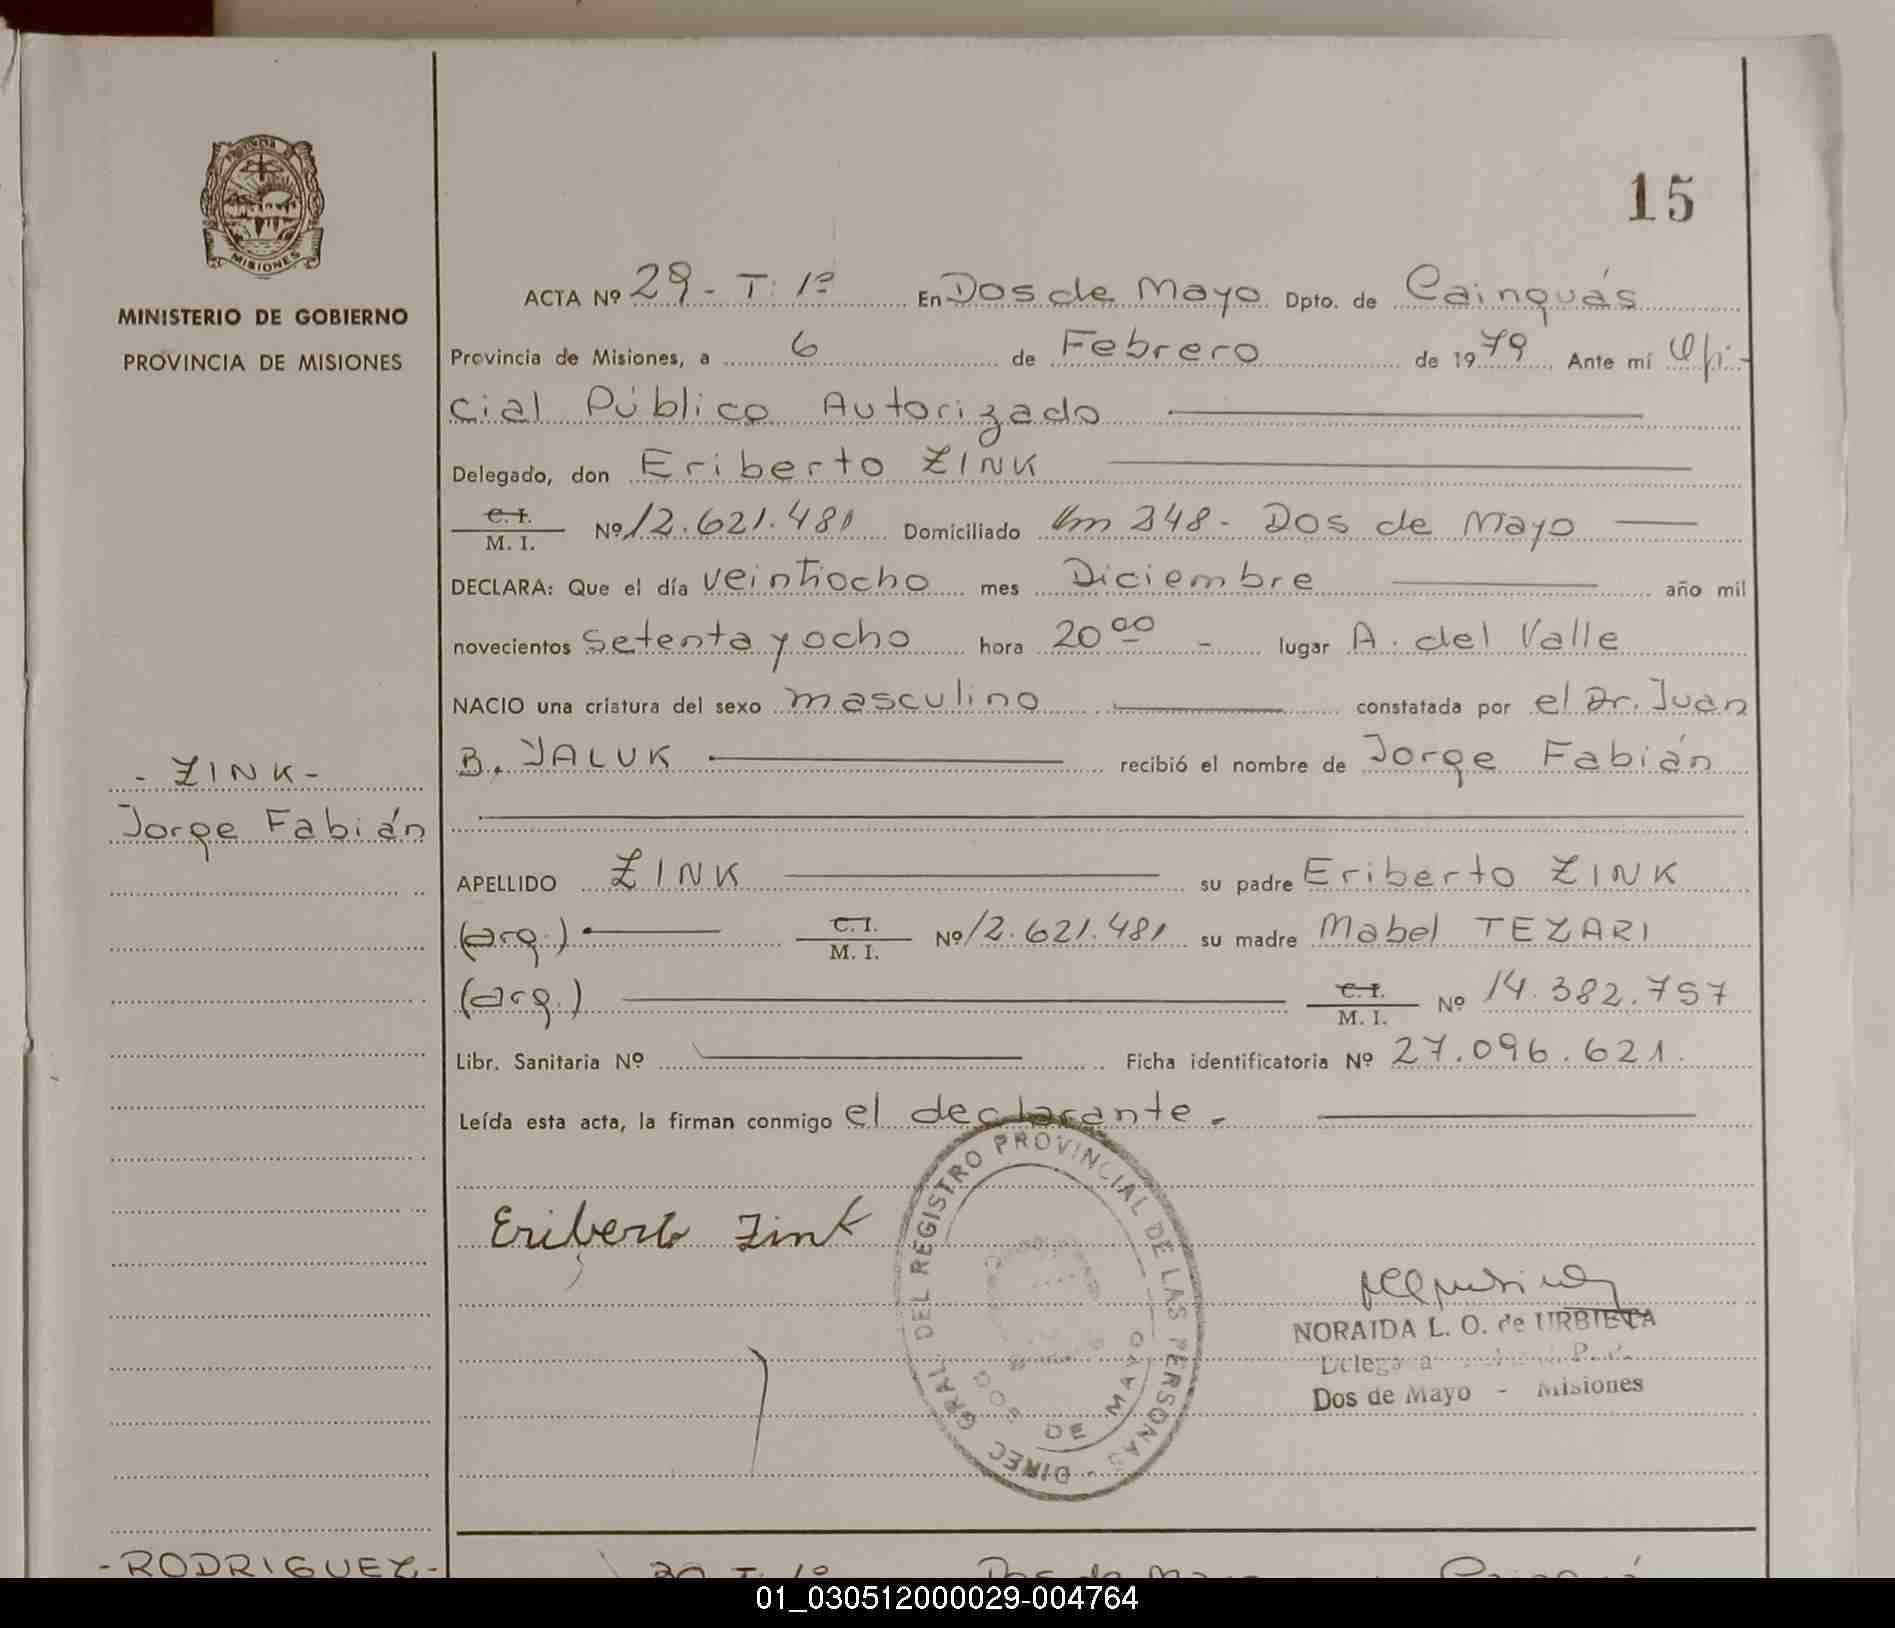 PROVINCIA DE
MISIONES
MINISTERIO DE GOBIERNO
PROVINCIA DE MISIONES
- ZINK -
Jorge Fabián
- RODRIGUEZ -
15
ACTA Nº 29 - T: 1º En Dos de Mayo Dpto. de Cainguás
Provincia de Misiones, a 6 de Febrero de 1979 Ante mí Ofi-
cial Público Autorizado
Delegado, don Eriberto ZINK
C. I.
M. I. Nº 12.621.481 Domiciliado Km 248 - Dos de Mayo
DECLARA: Que el día veintiocho mes Diciembre año mil
novecientos setenta y ocho hora 20 00 - lugar A. del Valle
NACIO una criatura del sexo masculino constatada por el Dr. Juan
B. YALUK recibió el nombre de Jorge Fabián
APELLIDO ZINK su padre Eriberto ZINK
(arg.) C. I.
M. I. Nº 12.621.481 su madre Mabel TEZARI
(arg.) C. I.
M. I. Nº 14.382.757
Libr. Sanitaria Nº Ficha identificatoria Nº 27.096.621.
Leída esta acta, la firman conmigo el declarante.
Eriberto Zink
DIREC GRAL. DEL REGISTRO PROVINCIAL DE LAS PERSONAS -
DOS DE MAYO
NORAIDA L. O. de URBIETA
Delegada
Dos de Mayo - Misiones
30 T: 1º Dos de Mayo Cainguá
01_030512000029-004764